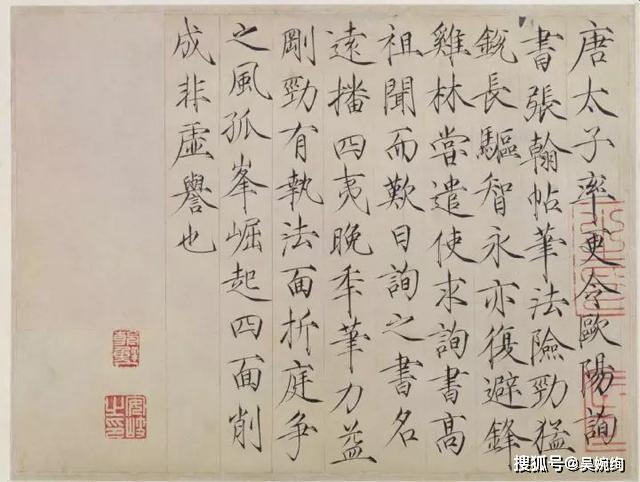 唐太子率更令歐陽詢
書張翰帖筆法險勁猛
銳長驅智永亦復避鋒
雞林嘗遣使求詢書高
祖聞而歎曰詢之書名
遠播四夷晚年筆力益
剛勁有執法面折庭爭
之風孤峯崛起四面削
成非虛譽也
搜狐号@吴婉绚